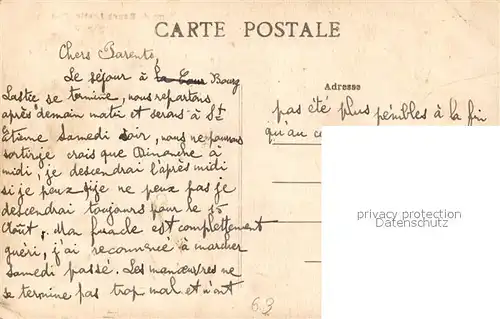 CARTE POSTALE
Chers Parents,
Le séjour à la Cour Bourg
Lastic se termine, nous repartons
après demain matin et serons à St
Etienne Samedi soir, nous ne pouvons
sortir je crois que Dimanche à
midi, je descendrai l'après midi
si je peux si je ne peux pas je
descendrai toujours pour le 15
Août. Ma furoncle est complettement
guéri, j'ai recommencé à marcher
Samedi passé. Les manœuvres ne
se termine pas trop mal et n'ont
Adresse
pas été plus pénibles à la fin
qu'au
privacy protection
Datenschutz
63